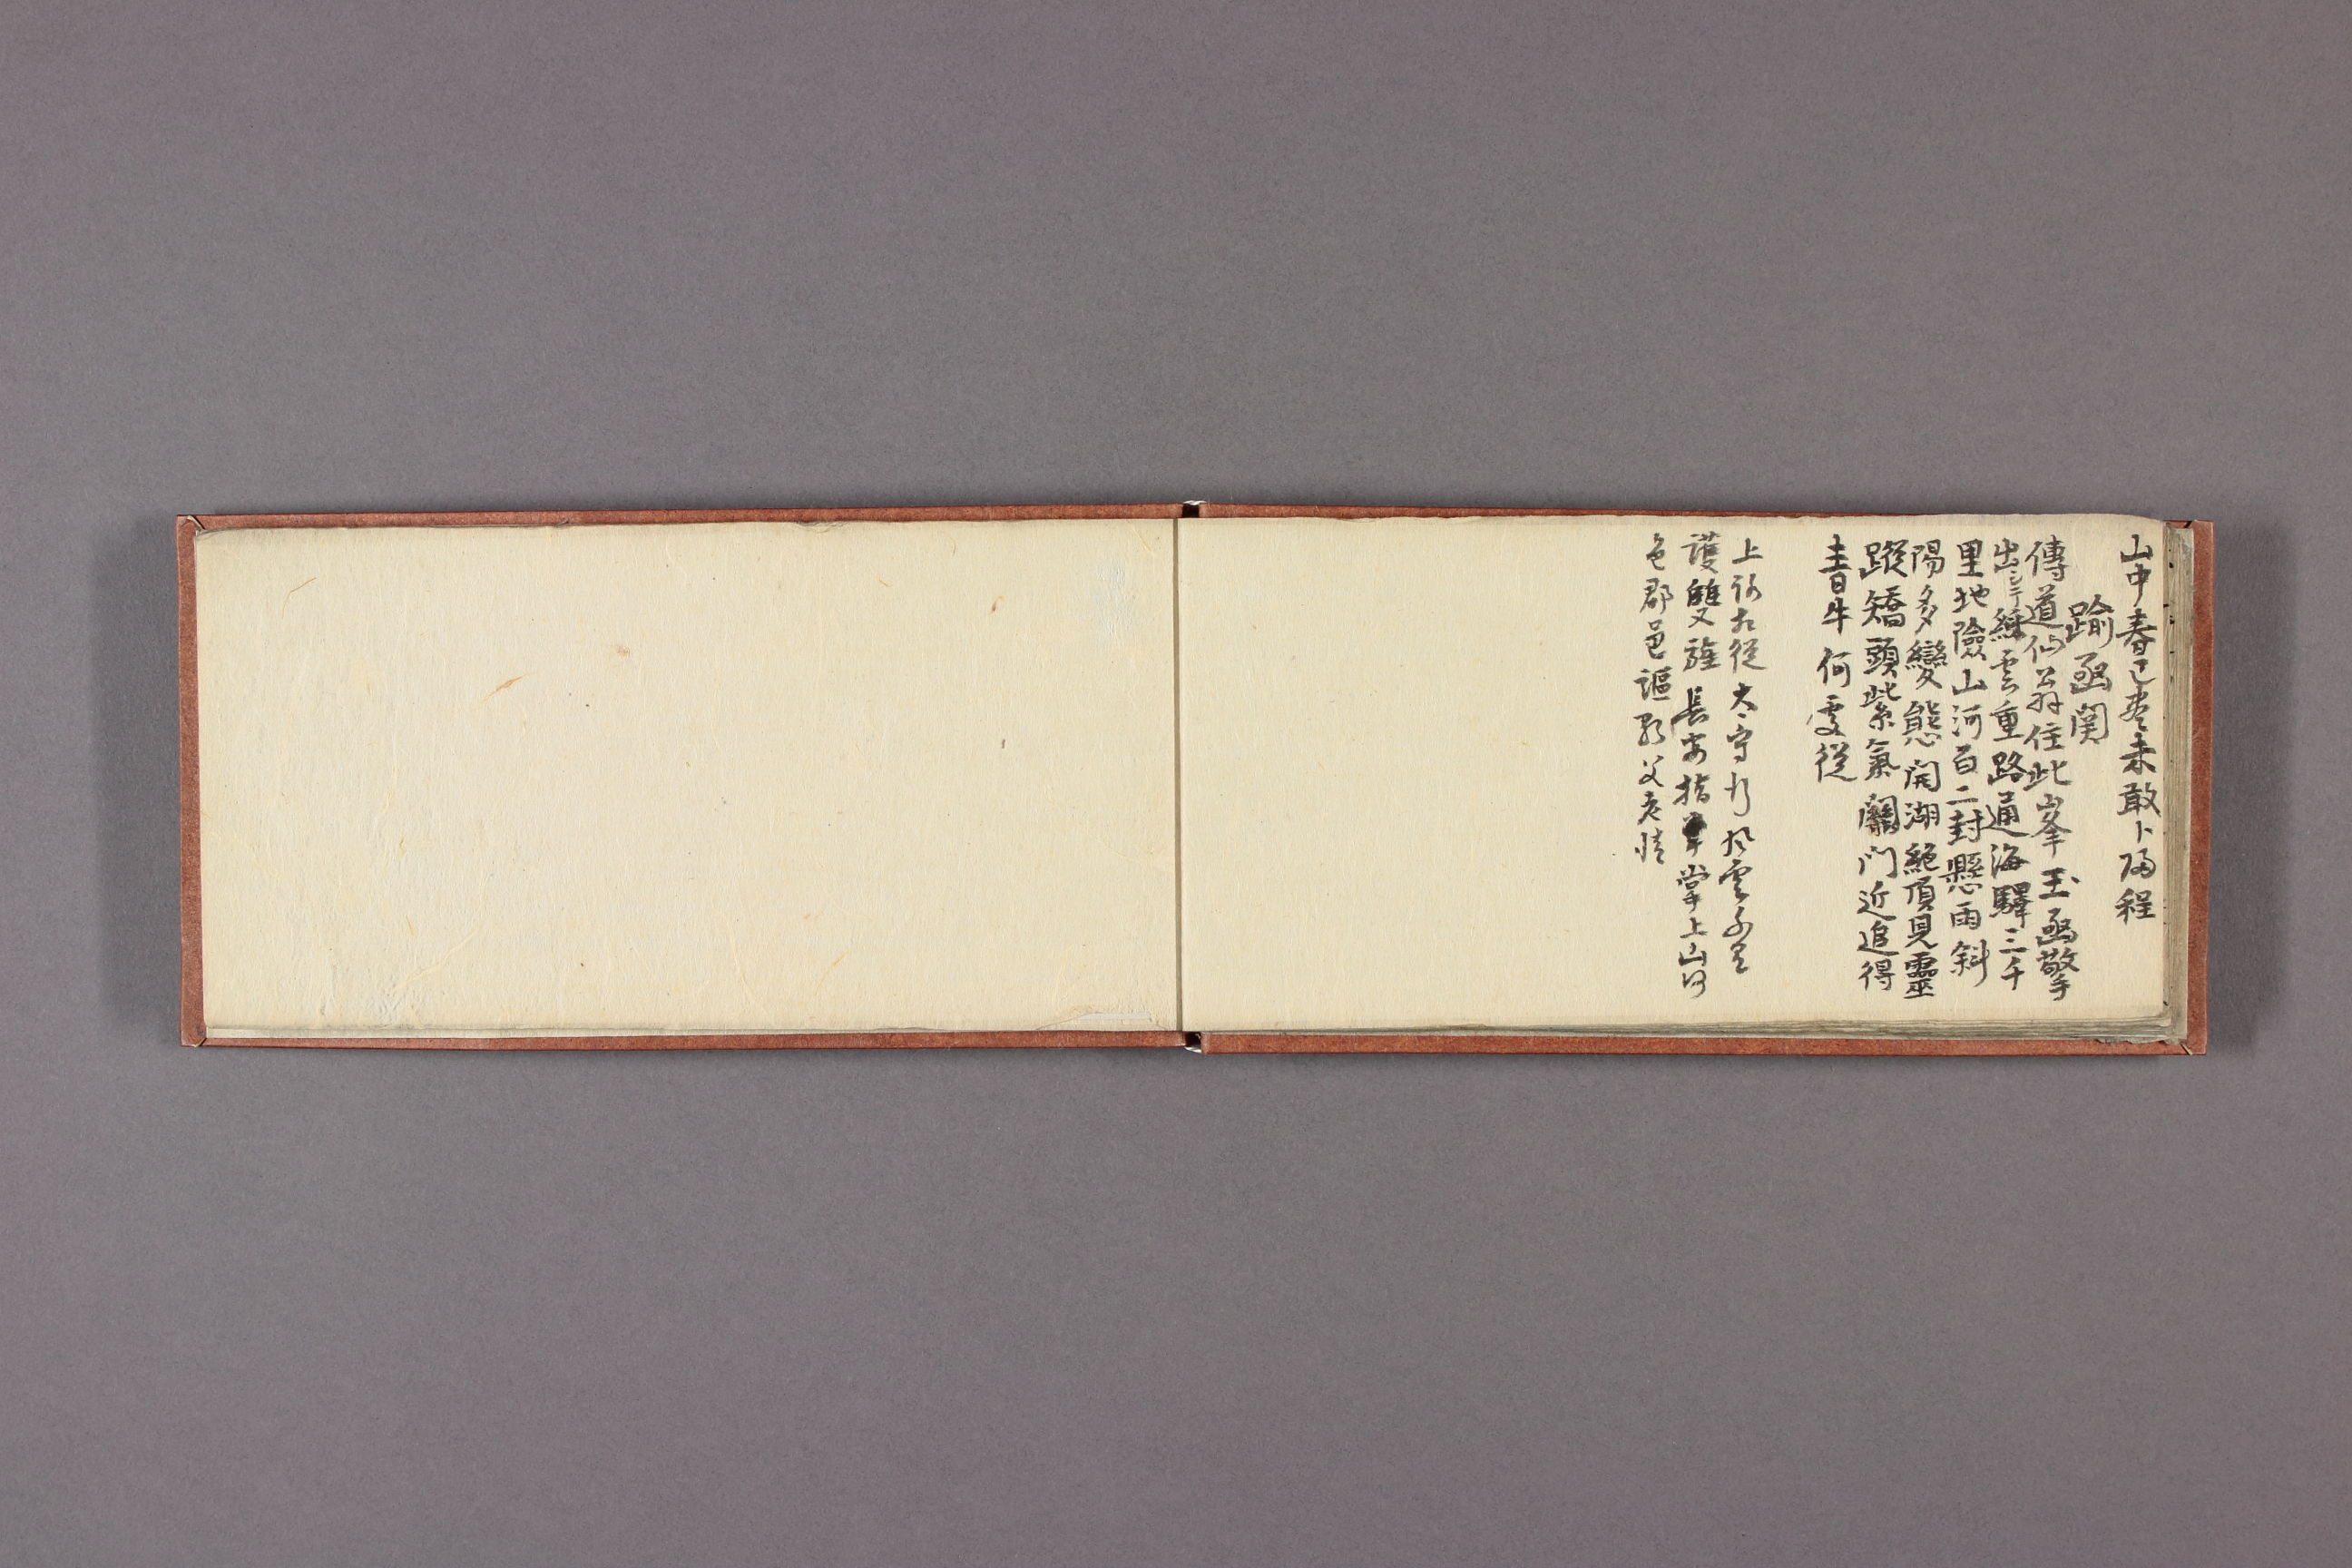 山中春已盡未敢卜歸程
踰函関
傳道仙翁住此峯玉函擎
出綵雲重路通海驛三千
里地險山河百二封懸雨斜
陽多變態開湖絶頂見靈
蹤矯頭紫氣關門近追得
青牛何處從
上 相從太守行風雲
護雙旌長安指掌上山河
色郡邑謳歌父老情